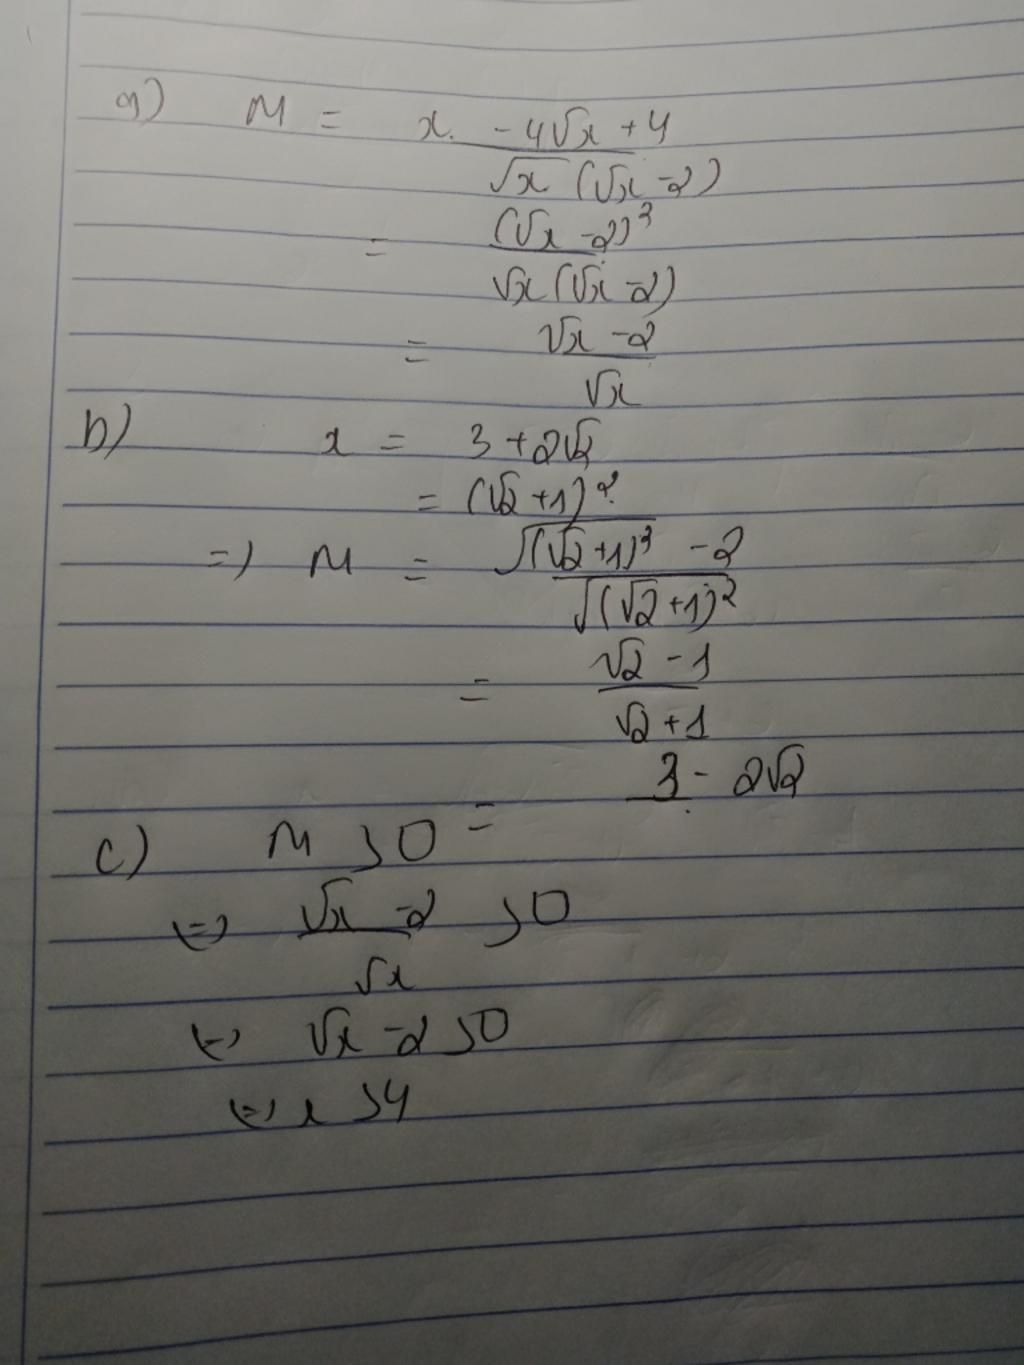 a) M = x - 4√x + 4
√x (√x - 2)
= (√x - 2)²
√x (√x - 2)
= √x - 2
√x
b) x = 3 + 2√2
= (√2 + 1)²
=) M = √(√2 + 1)² - 2
√(√2 + 1)²
= √2 - 1
√2 + 1
= 3 - 2√2
c) M > 0
(=) √x - 2 > 0
√x
(=) √x - 2 > 0
(=) x > 4